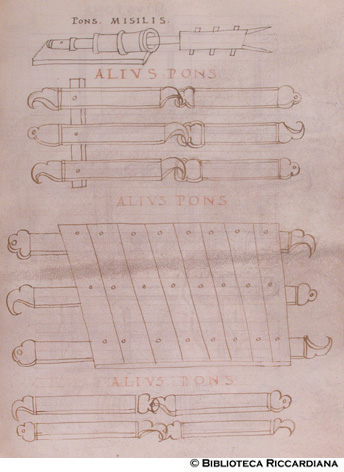 PONS. MISILIS.
ALIVS PONS
ALIVS PONS
ALIVS PONS
© BIBLIOTECA RICCARDIANA